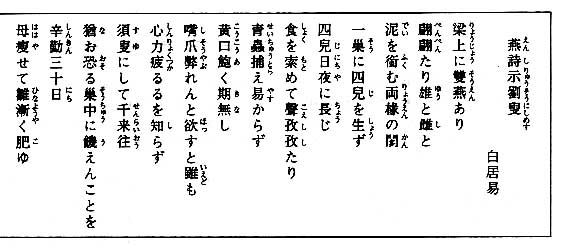 燕詩示劉叟
白居易
梁上に雙燕あり
翩翩たり雄と雌と
泥を銜む両椽の間
一巣に四兒を生ず
四兒日夜に長じ
食を索めて聲孜孜たり
青蟲捕え易からず
黄口飽く期無し
嘴爪弊れんと欲すと雖も
心力疲るるを知らず
須臾にして千来往
猶お恐る巣中に饑えんことを
辛勤三十日
母痩せて雛漸く肥ゆ